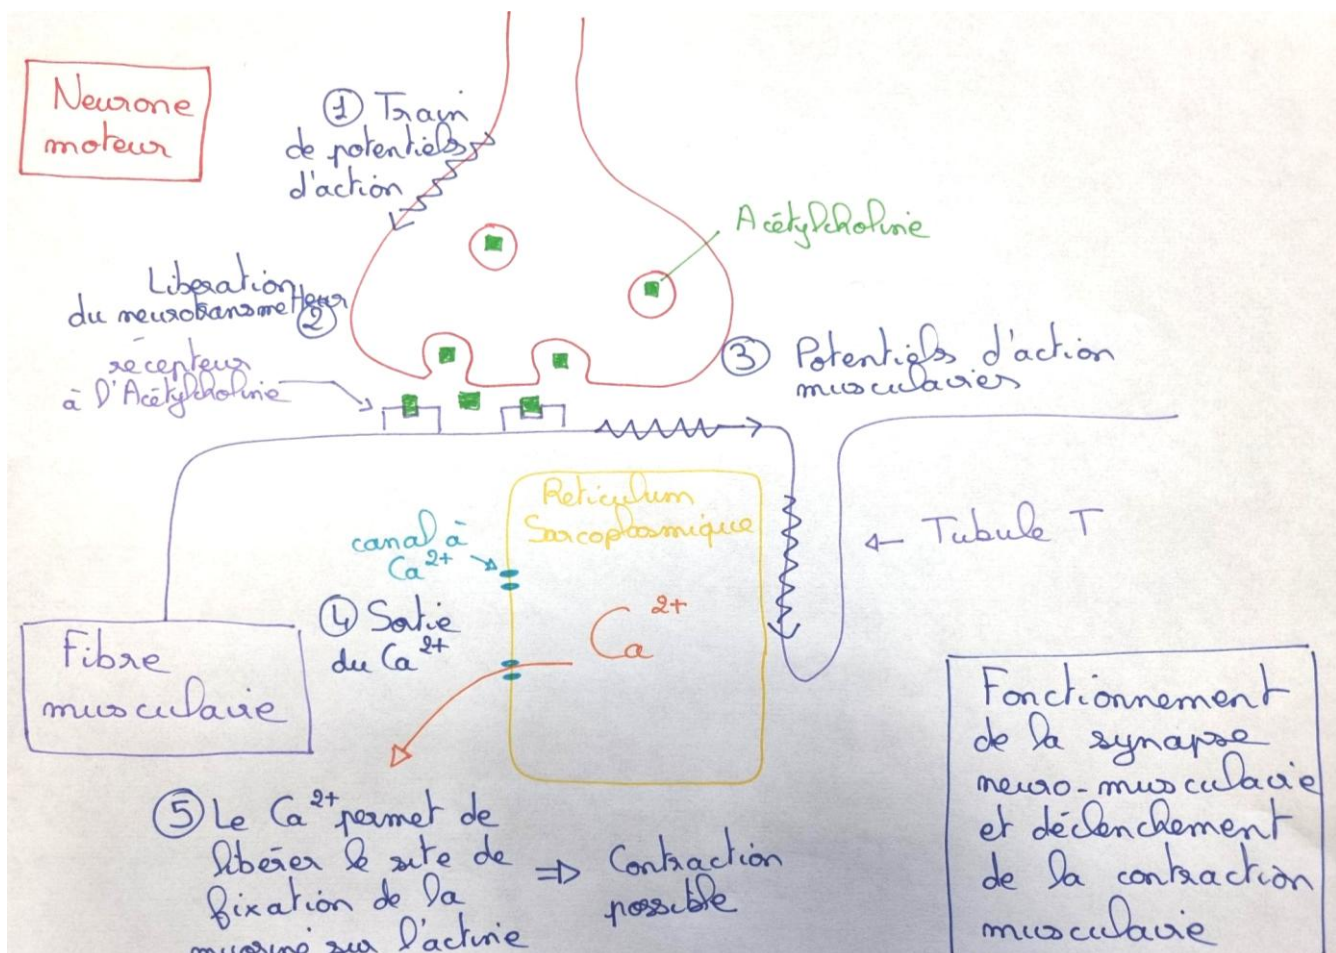 Neurone
moteur
① Train
de potentiels
d'action
Acétylcholine
Libération
du neurotransmetteur
②
récepteur
à l'Acétylcholine
③ Potentiels d'action
musculaires
Reticulum
Sarcoplasmique
canal à
Ca²⁺
Tubule T
④ Sortie
du Ca²⁺
Ca²⁺
Fibre
musculaire
⑤ Le Ca²⁺ permet de
libérer le site de
fixation de la
myosine sur l'actine
⇒ Contraction
possible
Fonctionnement
de la synapse
neuro-musculaire
et déclenchement
de la contraction
musculaire